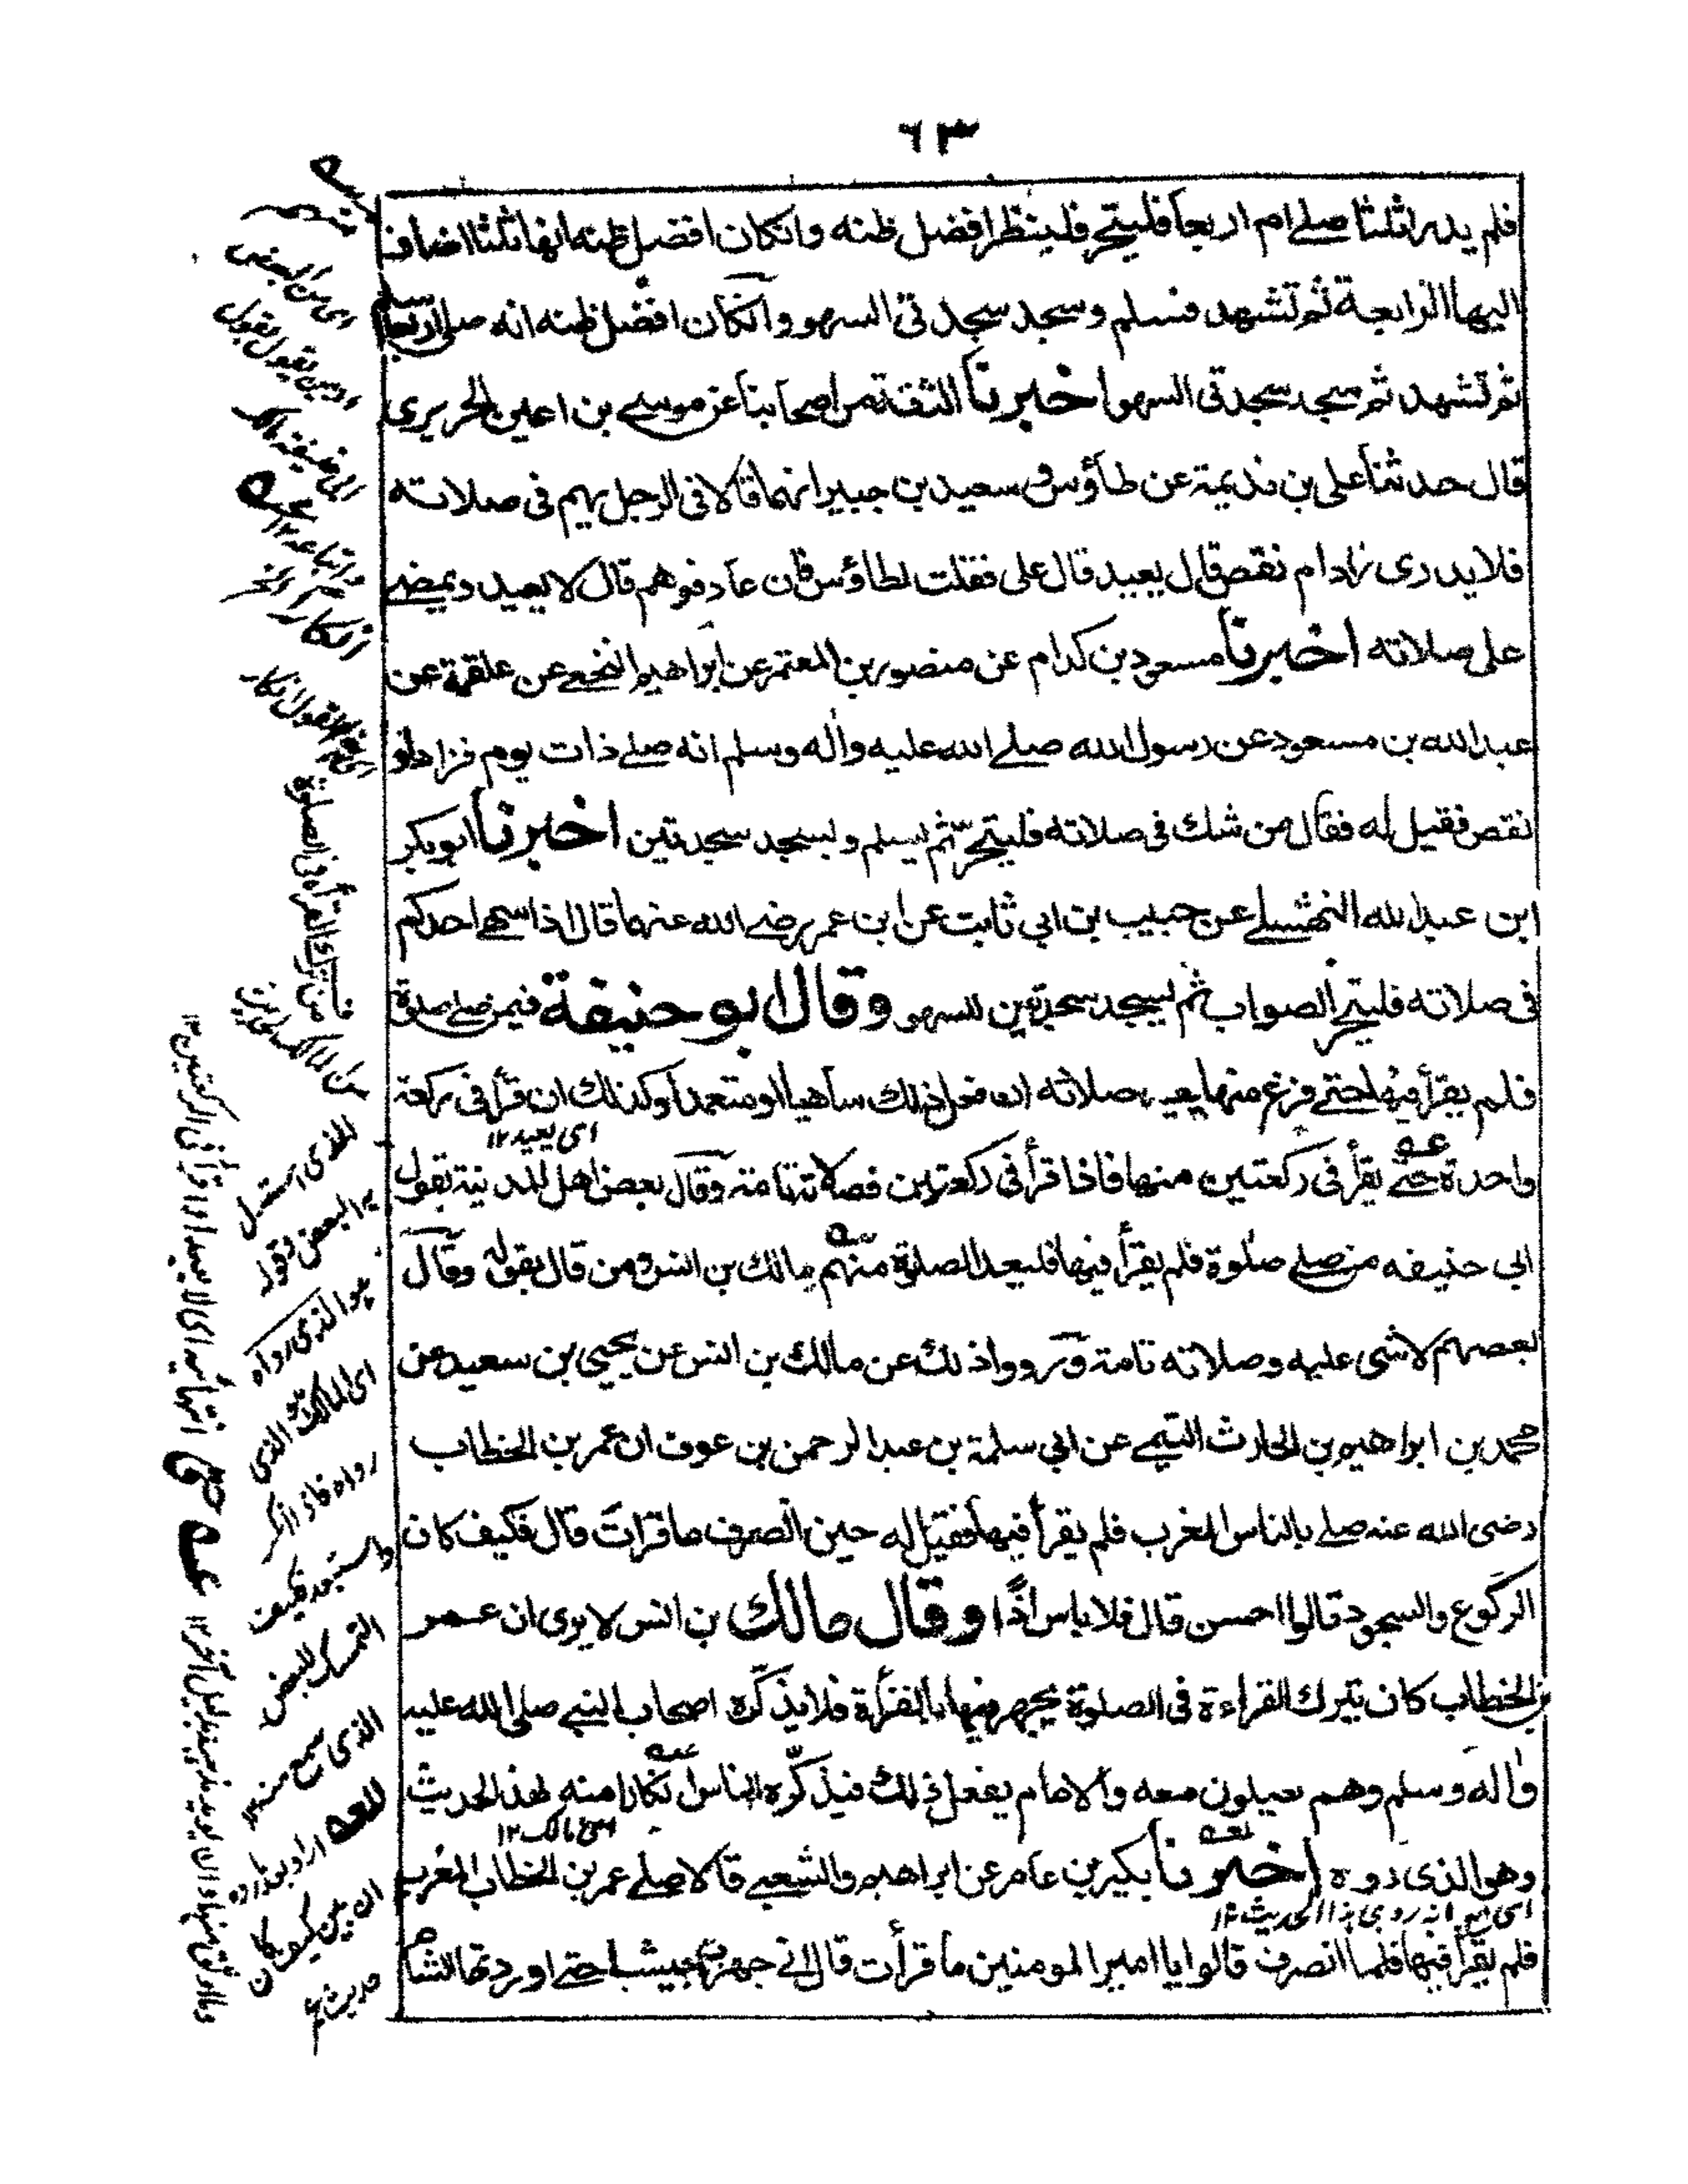 ٦٣
فلم يدر اثلثا صلے ام اربعا فليتحر فلينظر افضل ظنه وانكان افضل ظنه انها ثلثا اضاف
اليها الرابعة ثم تشهد فسلم وسجد سجدتى السهو وانكان افضل ظنه انه صلى اربعا
ثم تشهد ثم سجد سجدتى السهو اخبرنا الثقة من اصحابنا عن موسے بن اعين الحريرى
قال حدثنا على بن بذيمة عن طاؤس وسعيد بن جبير انهما قالا فى الرجل يهم فى صلاته
فلا يدرى زاد ام نقص قال يعيد قال على فقلت لطاؤس فان عاد فوهم قال لا يعيد ويمضے
على صلاته اخبرنا مسعود بن كدام عن منصور بن المعتمر عن ابراهيم النخعے عن علقمة عن
عبد الله بن مسعود عن رسول الله صلے الله عليه واٰله وسلم انه صلے ذات يوم فزاد او
نقص فقيل له فقال من شك فى صلاته فليتحر ثم ليسلم وليسجد سجدتين اخبرنا ابوبكر
ابن عبد الله النهشلے عن حبيب بن ابي ثابت عن ابن عمر رضے الله عنهما قال اذا سهے احدكم
فى صلاته فليتحر الصواب ثم ليسجد سجدتين للسهو وقال ابو حنيفة فيمن صلے صلوة
فلم يقرأ فيها حتے فرغ منها يعيد صلاته ان فعل ذلك ساهيا او متعمدا وكذلك ان قرأ فى ركعة
اى يعيد ١٢
واحدة حتے يقرأ فى ركعتين منها فاذا قرأ فى ركعتين فصلاته تامة وقال بعض اهل المدينة بقول
ابى حنيفه من صلے صلوة فلم يقرأ فيها فليعد الصلوة منهم مالك بن انس ومن قال بقوله وقال
بعضهم لا شى عليه وصلاته تامة ورووا ذلك عن مالك بن انس عن يحيى بن سعيد عن
محمد بن ابراهيم بن الحارث التيمے عن ابي سلمة بن عبد الرحمن بن عوف ان عمر بن الخطاب
رضى الله عنه صلے بالناس المغرب فلم يقرأ فيها فقيل له حين انصرف ما قرات قال فكيف كان
الركوع والسجود قالوا احسن قال فلا باس اذًا وقال مالك بن انس لا يرى ان عمر
بن الخطاب كان يترك القراءة فى الصلوة يجهر فيها بالقرأة فلا يذكره اصحاب النبے صلى الله عليه
واٰله وسلم وهم يصلون معه والامام يفعل ذلك فيذكره الناس انكارا منه لهذا الحديث
اى مالك ١٢
وهو الذى روه اخبرنا بكير بن عامر عن ابراهيم والشعبے قالا صلے عمر بن الخطاب المغرب
اى انه روى هذا الحديث ١٢
فلم يقرأ فيها فلما انصرف قالوا يا امير المومنين ما قرأت قال انے جهزت جيشا حتے اوردتها الشام
اى من البعض
الذى استقبل
البعض وقوله
هو الذى رواه
اى المالك الذى
التمسك للبعض
الذى سمع منه